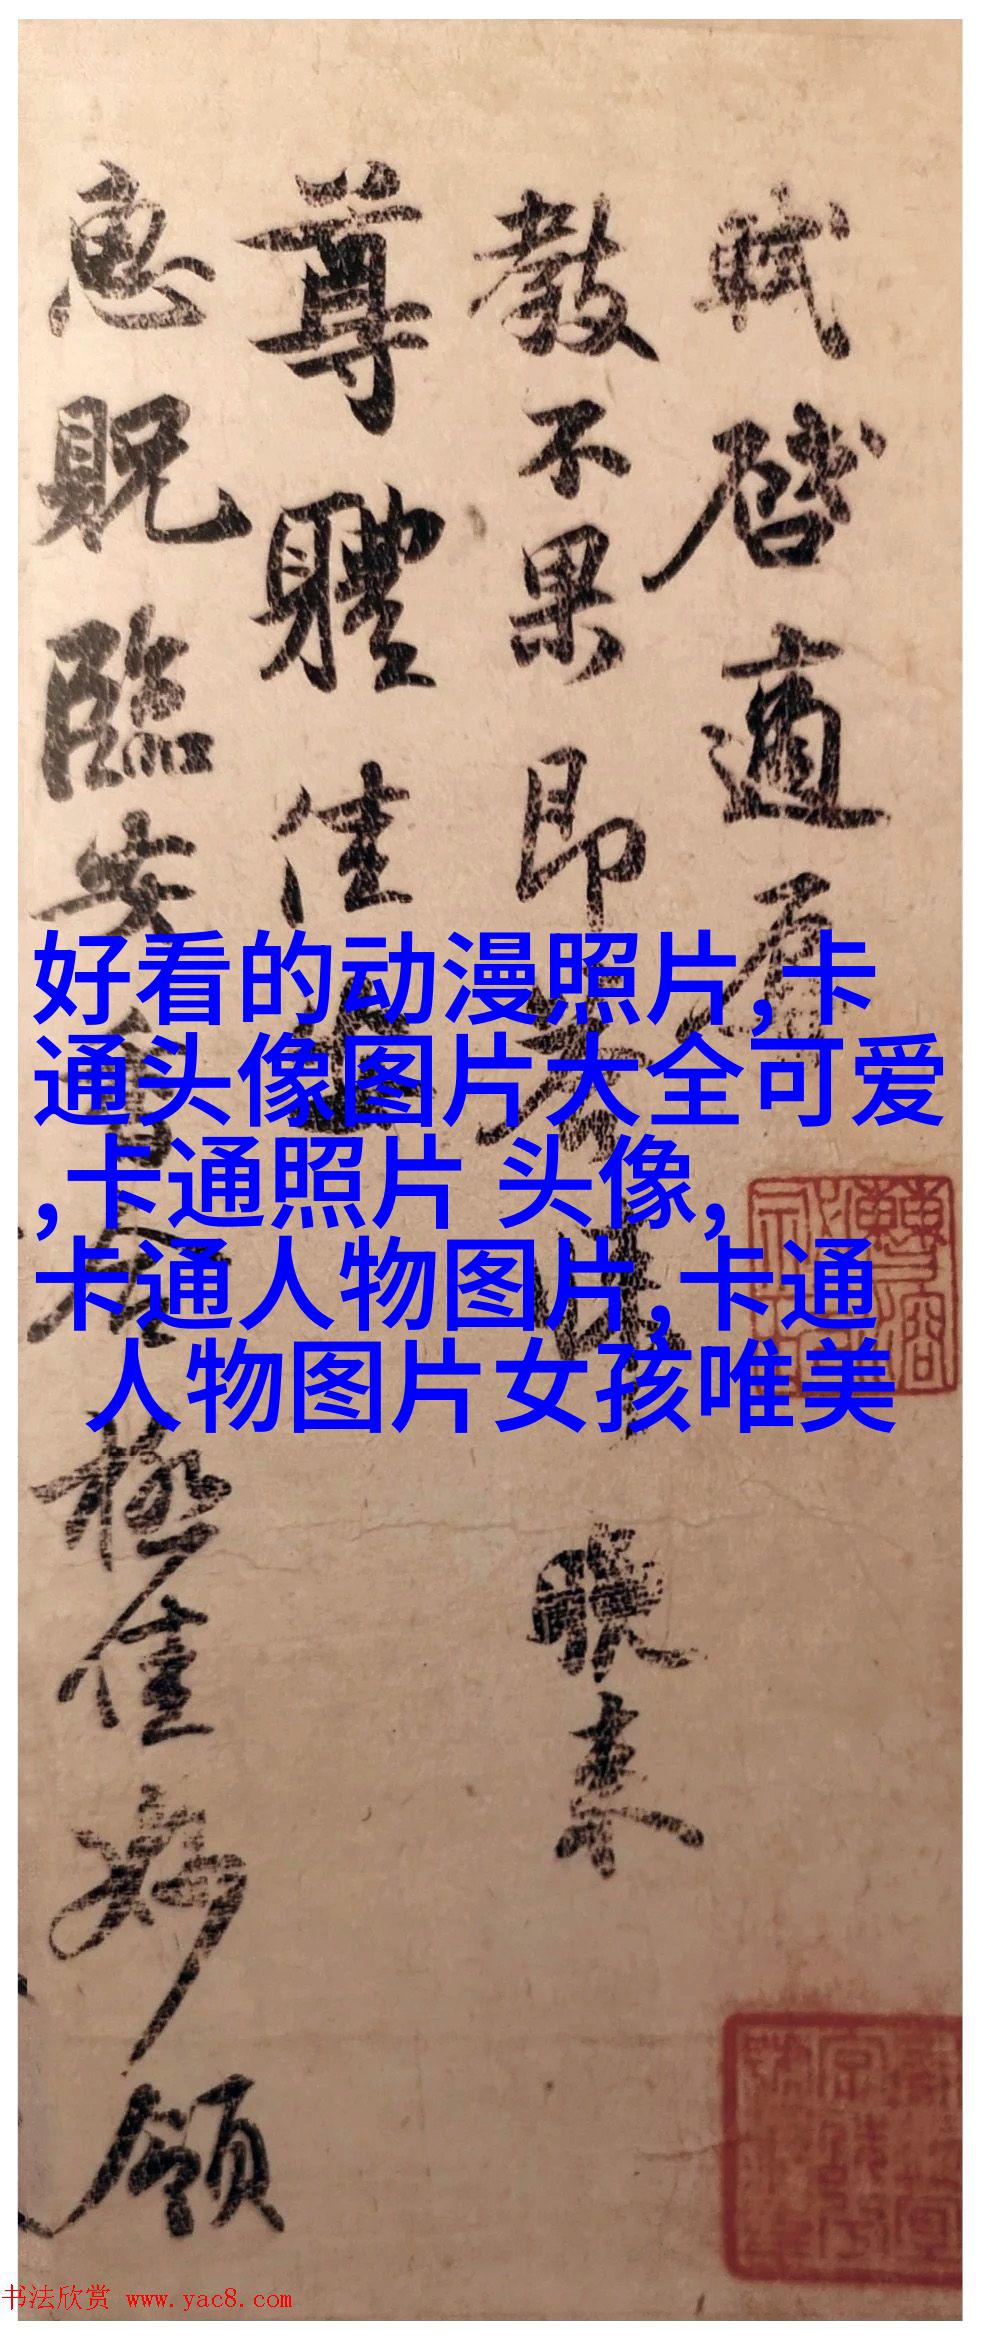 軾啓適辱
教不果即答悚悚晚來
尊體佳
惠貺臨安
極佳妙領
好看的动漫照片,卡
通头像图片大全可爱
,卡通照片 头像,
卡通人物图片,卡通
人物图片女孩唯美
书法欣赏 www.yac8.com